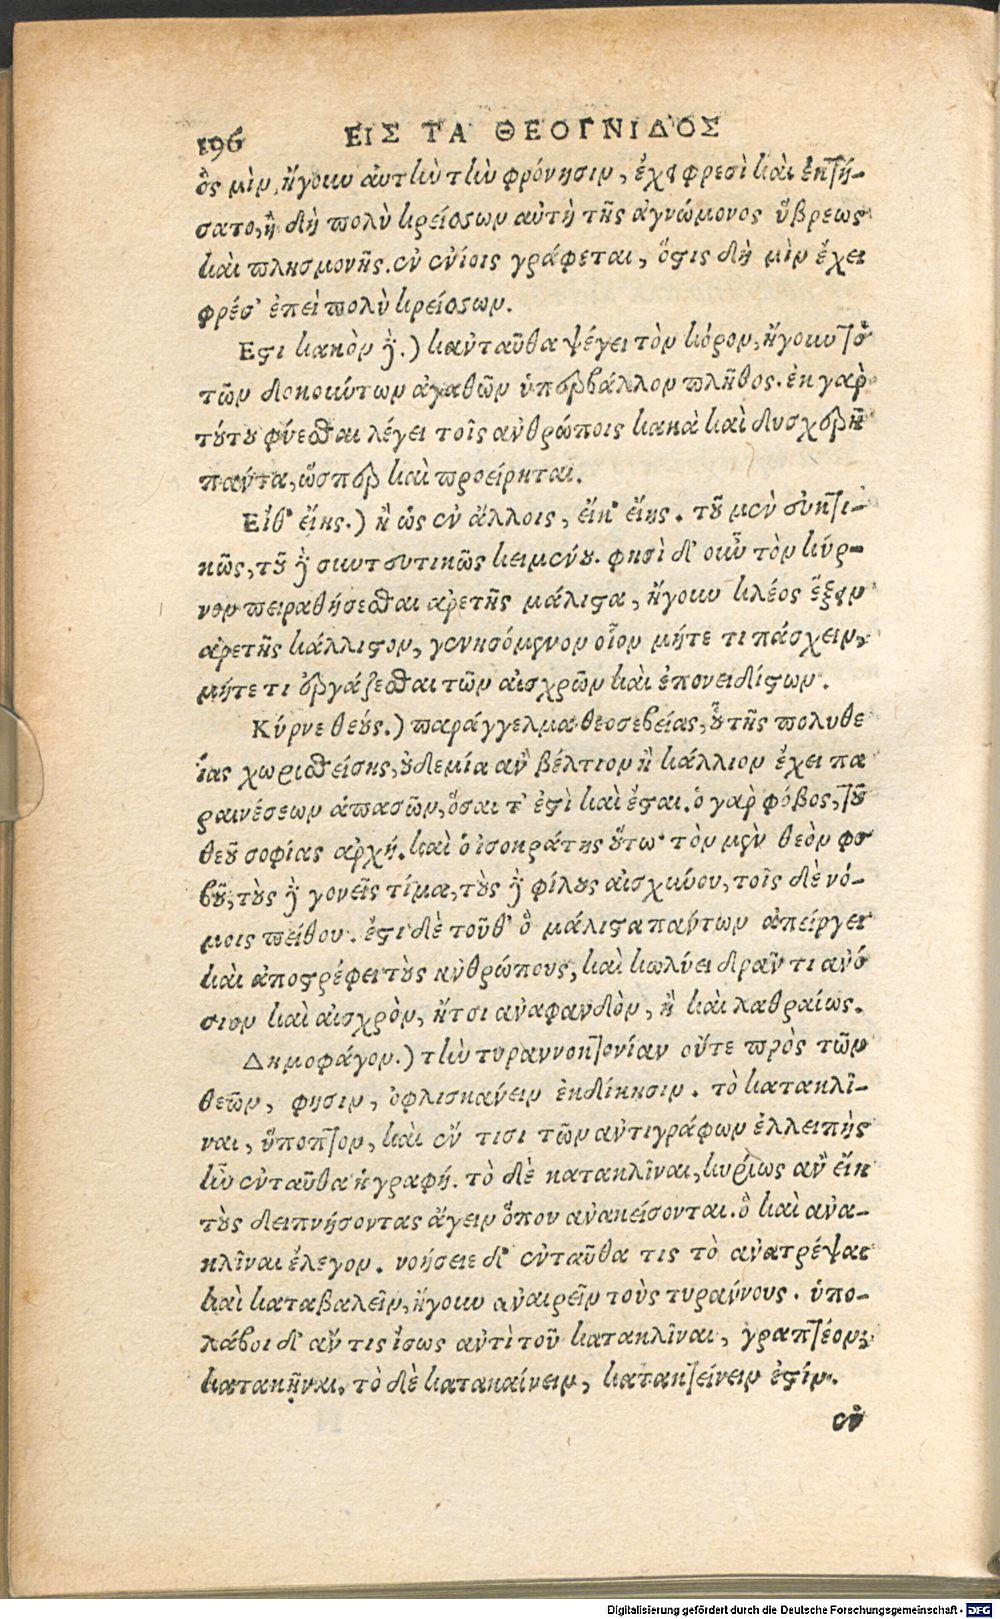 196 ΕΙΣ ΤΑ ΘΕΟΓΝΙΔΟΣ
ὃς μὲν, ἤγουν αὐτὴν τὴν φρόνησιν, ἔχει φρεσὶ καὶ ἐκτή-
σατο, ἢ δὴ πολὺ κρείσσων αὐτὴ τῆς ἀγνώμονος ὕβρεως
καὶ πλησμονῆς. ἐν ἐνίοις γράφεται, ὅστις δὴ μὲν ἔχει
φρέσ' ἐπεὶ πολὺ κρείσσων.
Εστι κακὸν δὲ.) κἀνταῦθα ψέγει τὸν κόρον, ἤγουν τὸ
τῶν δοκούντων ἀγαθῶν ὑπερβάλλον πλῆθος. ἐκ γὰρ
τούτου φύεσθαι λέγει τοῖς ἀνθρώποις κακὰ καὶ δυσχερῆ
πάντα, ὥσπερ καὶ προείρηται.
Εἶθ' εἴης.) ἢ ὡς ἐν ἄλλοις, εἴκ' εἴης. τοῦ μὲν εὐκτι-
κῶς, τοῦ δὲ συντευτικῶς κειμένου. φησὶ δ' οὖν τὸν κύρ-
νον πειραθήσεσθαι ἀρετῆς μάλιστα, ἤγουν κλέος ἕξειν
ἀρετῆς κάλλιστον, γενησόμενον οἷον μήτε τι πάσχειν,
μήτε τι ἐργάζεσθαι τῶν αἰσχρῶν καὶ ἐπονειδίστων.
Κύρνε θεούς.) παράγγελμα θεοσεβείας, οὗ τῆς πολυθε
ΐας χωρισθείσης, οὐδεμία ἂν βέλτιον ἢ κάλλιον ἔχει πα
ραινέσεων ἁπασῶν, ὅσαι τ' ἐστὶ καὶ ἔσται. ὁ γὰρ φόβος, τοῦ
θεοῦ σοφίας ἀρχή. καὶ ὁ ἰσοκράτης οὕτω· τὸν μὲν θεὸν φο
βοῦ, τοὺς δὲ γονεῖς τίμα, τοὺς δὲ φίλους αἰσχύνου, τοῖς δὲ νό-
μοις πείθου. ἔστι δὲ τοῦθ' ὃ μάλιστα πάντων ἀπείργει
καὶ ἀποστρέφει τοὺς ἀνθρώπους, καὶ κωλύει δρᾶν τι ἀνό
σιον καὶ αἰσχρὸν, ἤτοι ἀναφανδὸν, ἢ καὶ λαθραίως.
Δημοφάγον.) τὴν τυραννοκτονίαν οὔτε πρὸς τῶν
θεῶν, φησιν, ὀφλισκάνειν ἐκδίκησιν. τὸ κατακλῖ-
ναι, ὕποπτον, καὶ ἔν τισι τῶν ἀντιγράφων ἐλλειπὴς
ἦν ἐνταῦθα ἡ γραφή. τὸ δὲ κατακλῖναι, κυρίως ἂν εἴη
τοὺς δειπνήσοντας ἄγειν ὅπου ἀνακείσονται. ὃ καὶ ἀνα-
κλῖναι ἔλεγον. νοήσειε δ' ἐνταῦθα τις τὸ ἀνατρέψαι
καὶ καταβαλεῖν, ἤγουν ἀναιρεῖν τοὺς τυράννους. ὑπο-
λάβοι δ' ἄν τις ἴσως ἀντὶ τοῦ κατακλῖναι, γραπτέον,
κατακῆναι, τὸ δὲ κατακαίνειν, κατακτείνειν ἐστίν.
οὐ
Digitalisierung gefördert durch die Deutsche Forschungsgemeinschaft - DFG